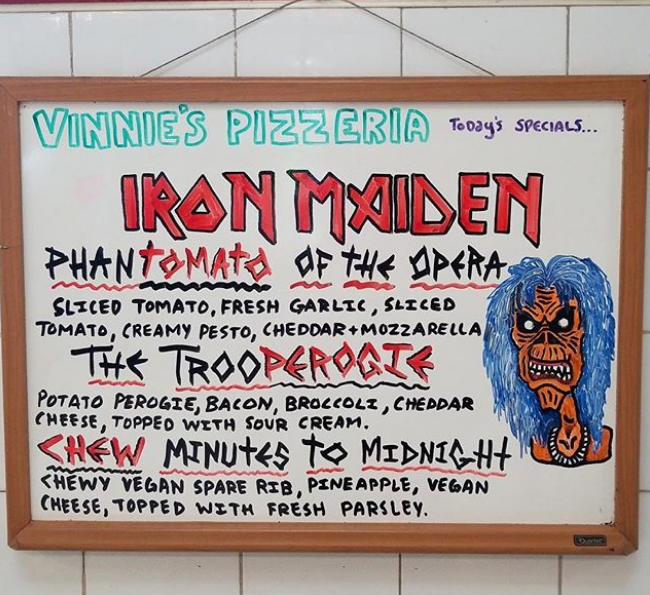 VINNIE'S PIZZERIA TODAY'S SPECIALS...
IRON MAIDEN
PHANTOMATO OF THE OPERA
SLICED TOMATO, FRESH GARLIC, SLICED
TOMATO, CREAMY PESTO, CHEDDAR + MOZZARELLA
THE TROOPEROGIE
POTATO PEROGIE, BACON, BROCCOLI, CHEDDAR
CHEESE, TOPPED WITH SOUR CREAM.
CHEW MINUTES TO MIDNIGHT
CHEWY VEGAN SPARE RIB, PINEAPPLE, VEGAN
CHEESE, TOPPED WITH FRESH PARSLEY.
Quartet